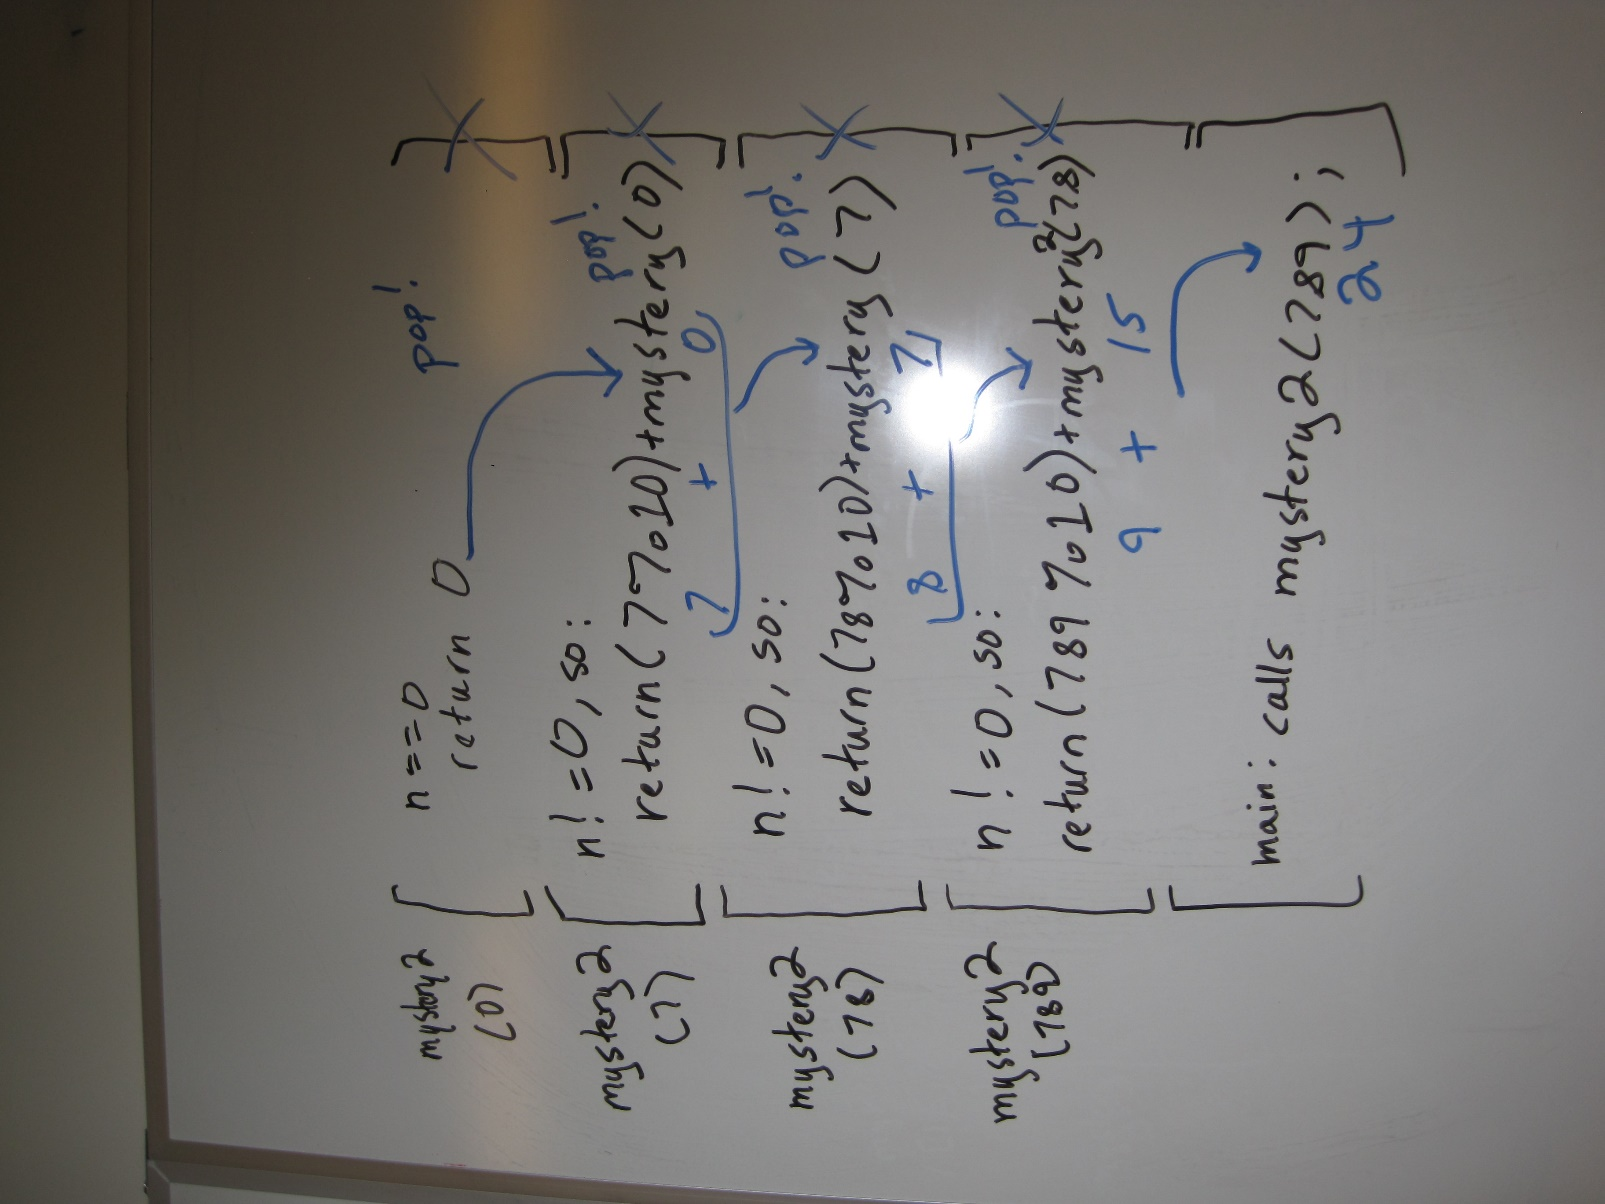 mystery2
(0)
n==0
return 0
pop!
mystery2
(7)
n!=0, so:
pop!
return(7%10)+mystery(0)
7 + 0
mystery2
(78)
n!=0, so:
pop!
return(78%10)+mystery(7)
8 + 7
mystery2
(789)
n!=0, so:
pop!
return(789%10)+mystery2(78)
9 + 15
main: calls mystery2(789);
24